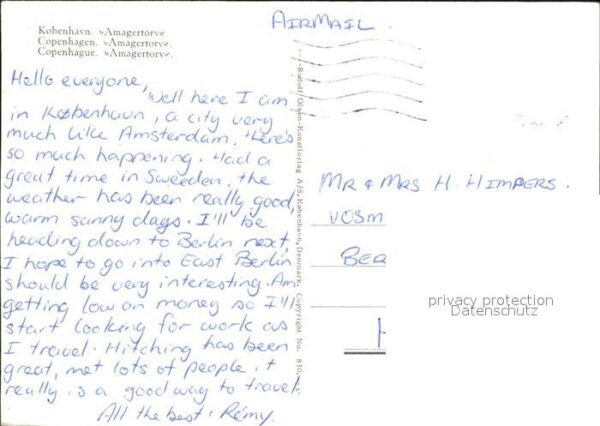 AIRMAIL.
København. »Amagertorv«.
Copenhagen. »Amagertorv«.
Copenhague. »Amagertorv«.
Hello everyone,
Well here I am
in København, a city very
much like Amsterdam, there's
so much happening. Had a
great time in Sweeden, the
weather has been really good,
warm sunny days. I'll be
heading down to Berlin next,
I hope to go into East Berlin
should be very interesting. Am
getting low on money so I'll
start looking for work as
I travel. Hitching has been
great, met lots of people, it
really is a good way to travel.
All the best, Rémy.
Rudolf Olsen-Kunstforlag A/S, København, Denmark. Copyright No. 830.
MR & MRS H. HIMPERS.
VOSM
BER
privacy protection
Datenschutz